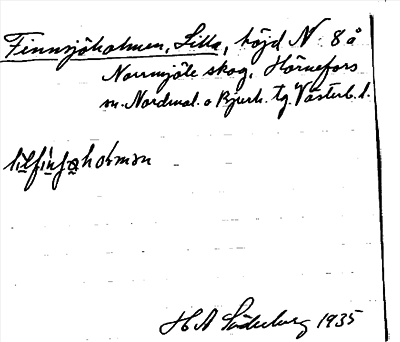 Finnsjöholmen, Lilla, höjd N. 8 å
Norrmjöle skog, Hörnefors
sn. Nordmal. o Bjurh. tg. Västerb. l.
H A Söderberg 1935